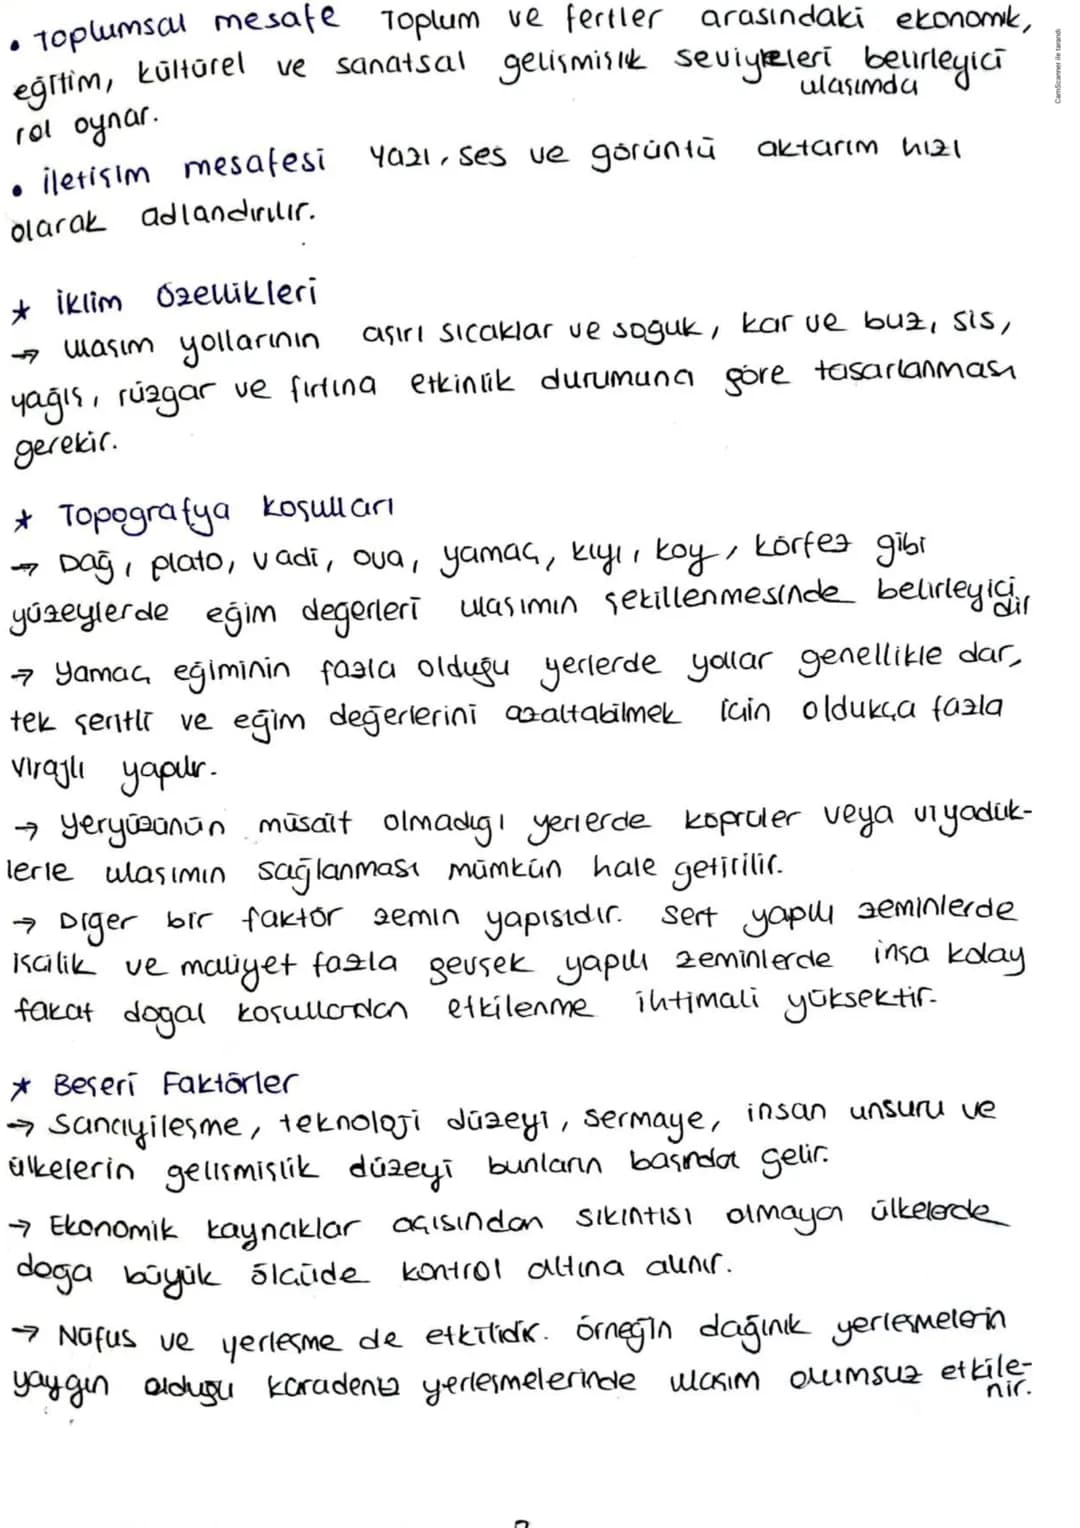 • Toplumsal mesafe Toplum ve fertler arasındaki ekonomik,
eğitim, kültürel ve sanatsal gelişmişlik seviyeleri belirleyici
ulaşımda
rol oynar.
• iletişim mesafesi Yazı, ses ve görüntü aktarım hızı
olarak adlandırılır.
* İklim Özellikleri
→ Ulaşım yollarının aşırı sıcaklar ve soğuk, kar ve buz, sis,
yağış, rüzgar ve fırtına etkinlik durumuna göre tasarlanması
gerekir.
* Topografya koşulları
→ Dağ, plato, vadi, ova, yamaç, kıyı, koy, körfez gibi
yüzeylerde eğim değerleri ulaşımın şekillenmesinde belirleyici
dir
→ Yamaç eğiminin fazla olduğu yerlerde yollar genellikle dar,
tek şeritli ve eğim değerlerini azaltabilmek için oldukça fazla
virajlı yapılır.
→ Yeryüzünün müsait olmadığı yerlerde köprüler veya viyadük-
lerle ulaşımın sağlanması mümkün hale getirilir.
→ Diğer bir faktör zemin yapısıdır. Sert yapılı zeminlerde
işçilik ve maliyet fazla gevşek yapılı zeminlerde inşa kolay
fakat doğal koşullardan etkilenme ihtimali yüksektir.
* Beşeri Faktörler
→ Sanayileşme, teknoloji düzeyi, sermaye, insan unsuru ve
ülkelerin gelişmişlik düzeyi bunların başında gelir.
→ Ekonomik kaynaklar açısından sıkıntısı olmayan ülkelerde
doğa büyük ölçüde kontrol altına alınır.
→ Nüfus ve yerleşme de etkilidir. Örneğin dağınık yerleşmelerin
yaygın olduğu karadeniz yerleşmelerinde ulaşım olumsuz etkile-
nir.
CamScanner ile tarandı